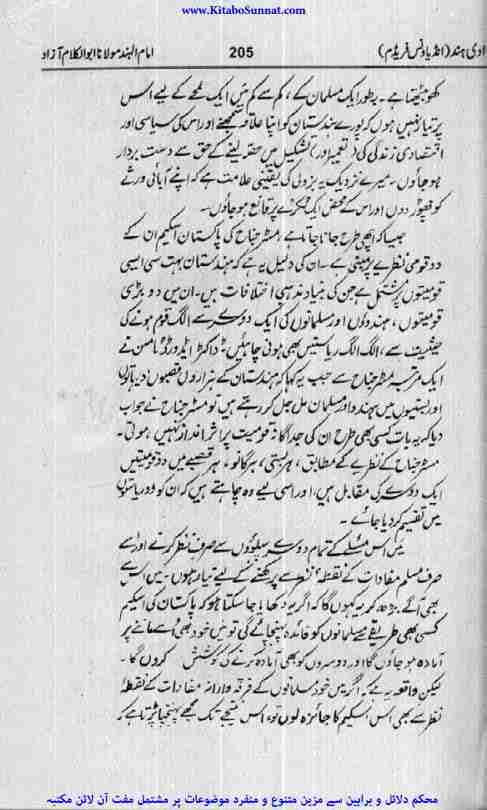 www.KitaboSunnat.com
ادی ہند (انڈیا ونس فریڈم)
205
امام الہند مولانا ابوالکلام آزاد
کھو بیٹھتا ہے۔ بطور ایک مسلمان کے، کم سے کم میں ایک لمحے کے لیے اس
پر تیار نہیں ہوں کہ پورے ہندستان کو اپنا علاقہ سمجھنے اور اس کی سیاسی اور
اقتصادی زندگی کی (تعمیر اور) تشکیل میں حصہ لینے کے حق سے دست بردار
ہو جاؤں۔ میرے نزدیک یہ بزدلی کی یقینی علامت ہے کہ اپنے آبائی ورثے
کو چھوڑ دوں اور اس کے محض ایک ٹکڑے پر قانع ہو جاؤں۔
جیسا کہ اچھی طرح جانا جاتا ہے، مسٹر جناح کی پاکستان اسکیم ان کے
دو قومی نظریے پر مبنی ہے۔ ان کی دلیل یہ ہے کہ ہندستان بہت سی ایسی
قومیتوں پر مشتمل ہے جن کی بنیاد مذہبی اختلافات ہیں۔ ان میں دو بڑی
قومیتوں، ہندوؤں اور مسلمانوں کی ایک دوسرے سے الگ قوم ہونے کی
حیثیت سے، الگ الگ ریاستیں بھی ہونی چاہئیں۔ ڈاکٹر ایڈورڈ ٹامسن نے
ایک مرتبہ مسٹر جناح سے جب یہ کہا کہ ہندستان کے ہزاروں قصبوں دیہاتوں
اور بستیوں میں ہندو اور مسلمان مل جل کر رہتے ہیں تو مسٹر جناح نے جواب
دیا کہ یہ بات کسی بھی طرح ان کی جداگانہ قومیت پر اثر انداز نہیں ہوتی۔
مسٹر جناح کے نظریے کے مطابق، ہر بستی، ہر گانو، ہر قصبے میں دو قومیتیں
ایک دوسرے کی مقابل ہیں، اور اسی لیے وہ چاہتے ہیں کہ ان کو دو ریاستوں
میں تقسیم کر دیا جائے۔
میں اس مسئلے کے تمام دوسرے پہلوؤں سے صرف نظر کرنے اور اسے
صرف مسلم مفادات کے نقطۂ نظر سے پرکھنے کے لیے تیار ہوں۔ میں اس سے
بھی آگے بڑھ کر یہ کہوں گا کہ اگر یہ دکھایا جا سکتا ہو کہ پاکستان کی اسکیم
کسی بھی طریقے سے مسلمانوں کو فائدہ پہنچائے گی تو میں خود بھی اسے ماننے پر
آمادہ ہو جاؤں گا اور دوسروں کو بھی آمادہ کرنے کی کوشش کروں گا۔
لیکن واقعہ یہ ہے کہ اگر میں خود مسلمانوں کے فرقہ وارانہ مفادات کے نقطۂ
نظر سے بھی اس اسکیم کا جائزہ لوں تو، اس نتیجے تک مجھے پہنچنا پڑتا ہے کہ
محکم دلائل و براہین سے مزین متنوع و منفرد موضوعات پر مشتمل مفت آن لائن مکتبہ